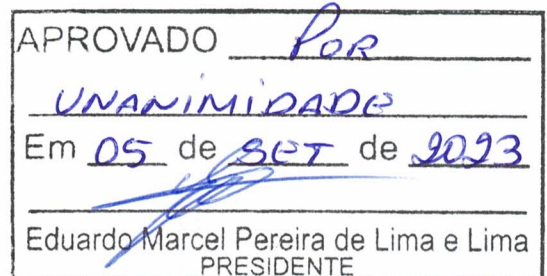 APROVADO POR
UNANIMIDADE
Em 05 de SET de 2023
Eduardo Marcel Pereira de Lima e Lima
PRESIDENTE